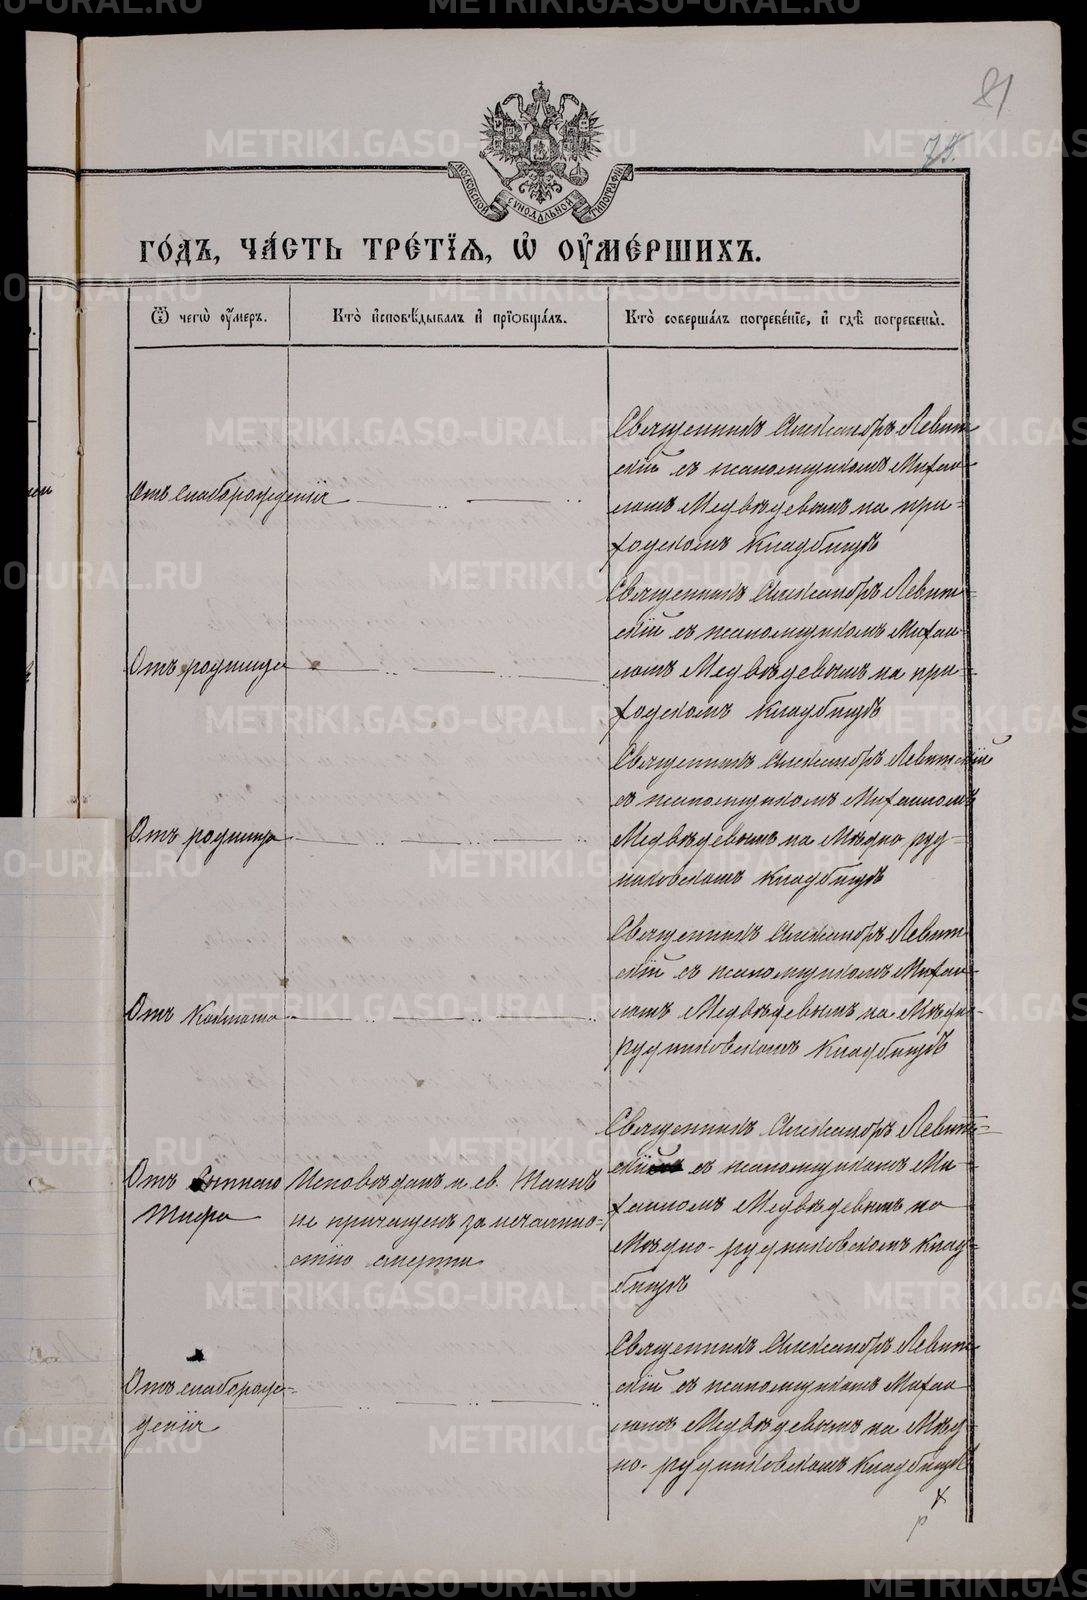 81
75.
МОСКОВСКОЙ СѴНОДАЛЬНОЙ ТИПОГРАФІИ
ГО́ДЪ, ЧА́СТЬ ТРЕ́ТІЯ, Ѡ҆ ОУ҆МЕ́РШИХЪ.
Ѿ чегѡ̀ оу҆́меръ.
Кто̀ и҆сповѣ́дывалъ и҆ прїѡбща́лъ.
Кто̀ соверша́лъ погребе́нїе, и҆ гдѣ̀ погребены̀.
Отъ слаборожденія
Священникъ Александръ Левит-
скій съ псаломщикомъ Михаи-
ломъ Медвѣдевымъ на при-
ходскомъ кладбищѣ
Отъ родимца
Священникъ Александръ Левит-
скій съ псаломщикомъ Михаи-
ломъ Медвѣдевымъ на при-
ходскомъ кладбищѣ
Отъ родимца
Священникъ Александръ Левитскій
съ псаломщикомъ Михаиломъ
Медвѣдевымъ на Мѣдно руд-
никовскомъ кладбищѣ
Отъ
Священникъ Александръ Левит-
скій съ псаломщикомъ Михаи-
ломъ Медвѣдевымъ на Мѣдно-
рудниковскомъ кладбищѣ
Отъ
тифа
Исповѣданъ и св. Таинъ
не причащенъ за нечаянно-
стію смерти
Священникъ Александръ Левит-
скій съ псаломщикомъ Ми-
хаиломъ Медвѣдевымъ на
Мѣдно-рудниковскомъ клад-
бищѣ
Отъ слаборож-
денія
Священникъ Александръ Левит-
скій съ псаломщикомъ Михаи-
ломъ Медвѣдевымъ на Мѣд-
но-рудниковскомъ кладбищѣ
METRIKI.GASO-URAL.RU